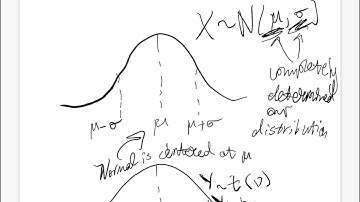 X~N(μ, σ)
completely
determined
our
distribution
μ-σ μ μ+σ
Normal is centered at μ
Y~t(ν)